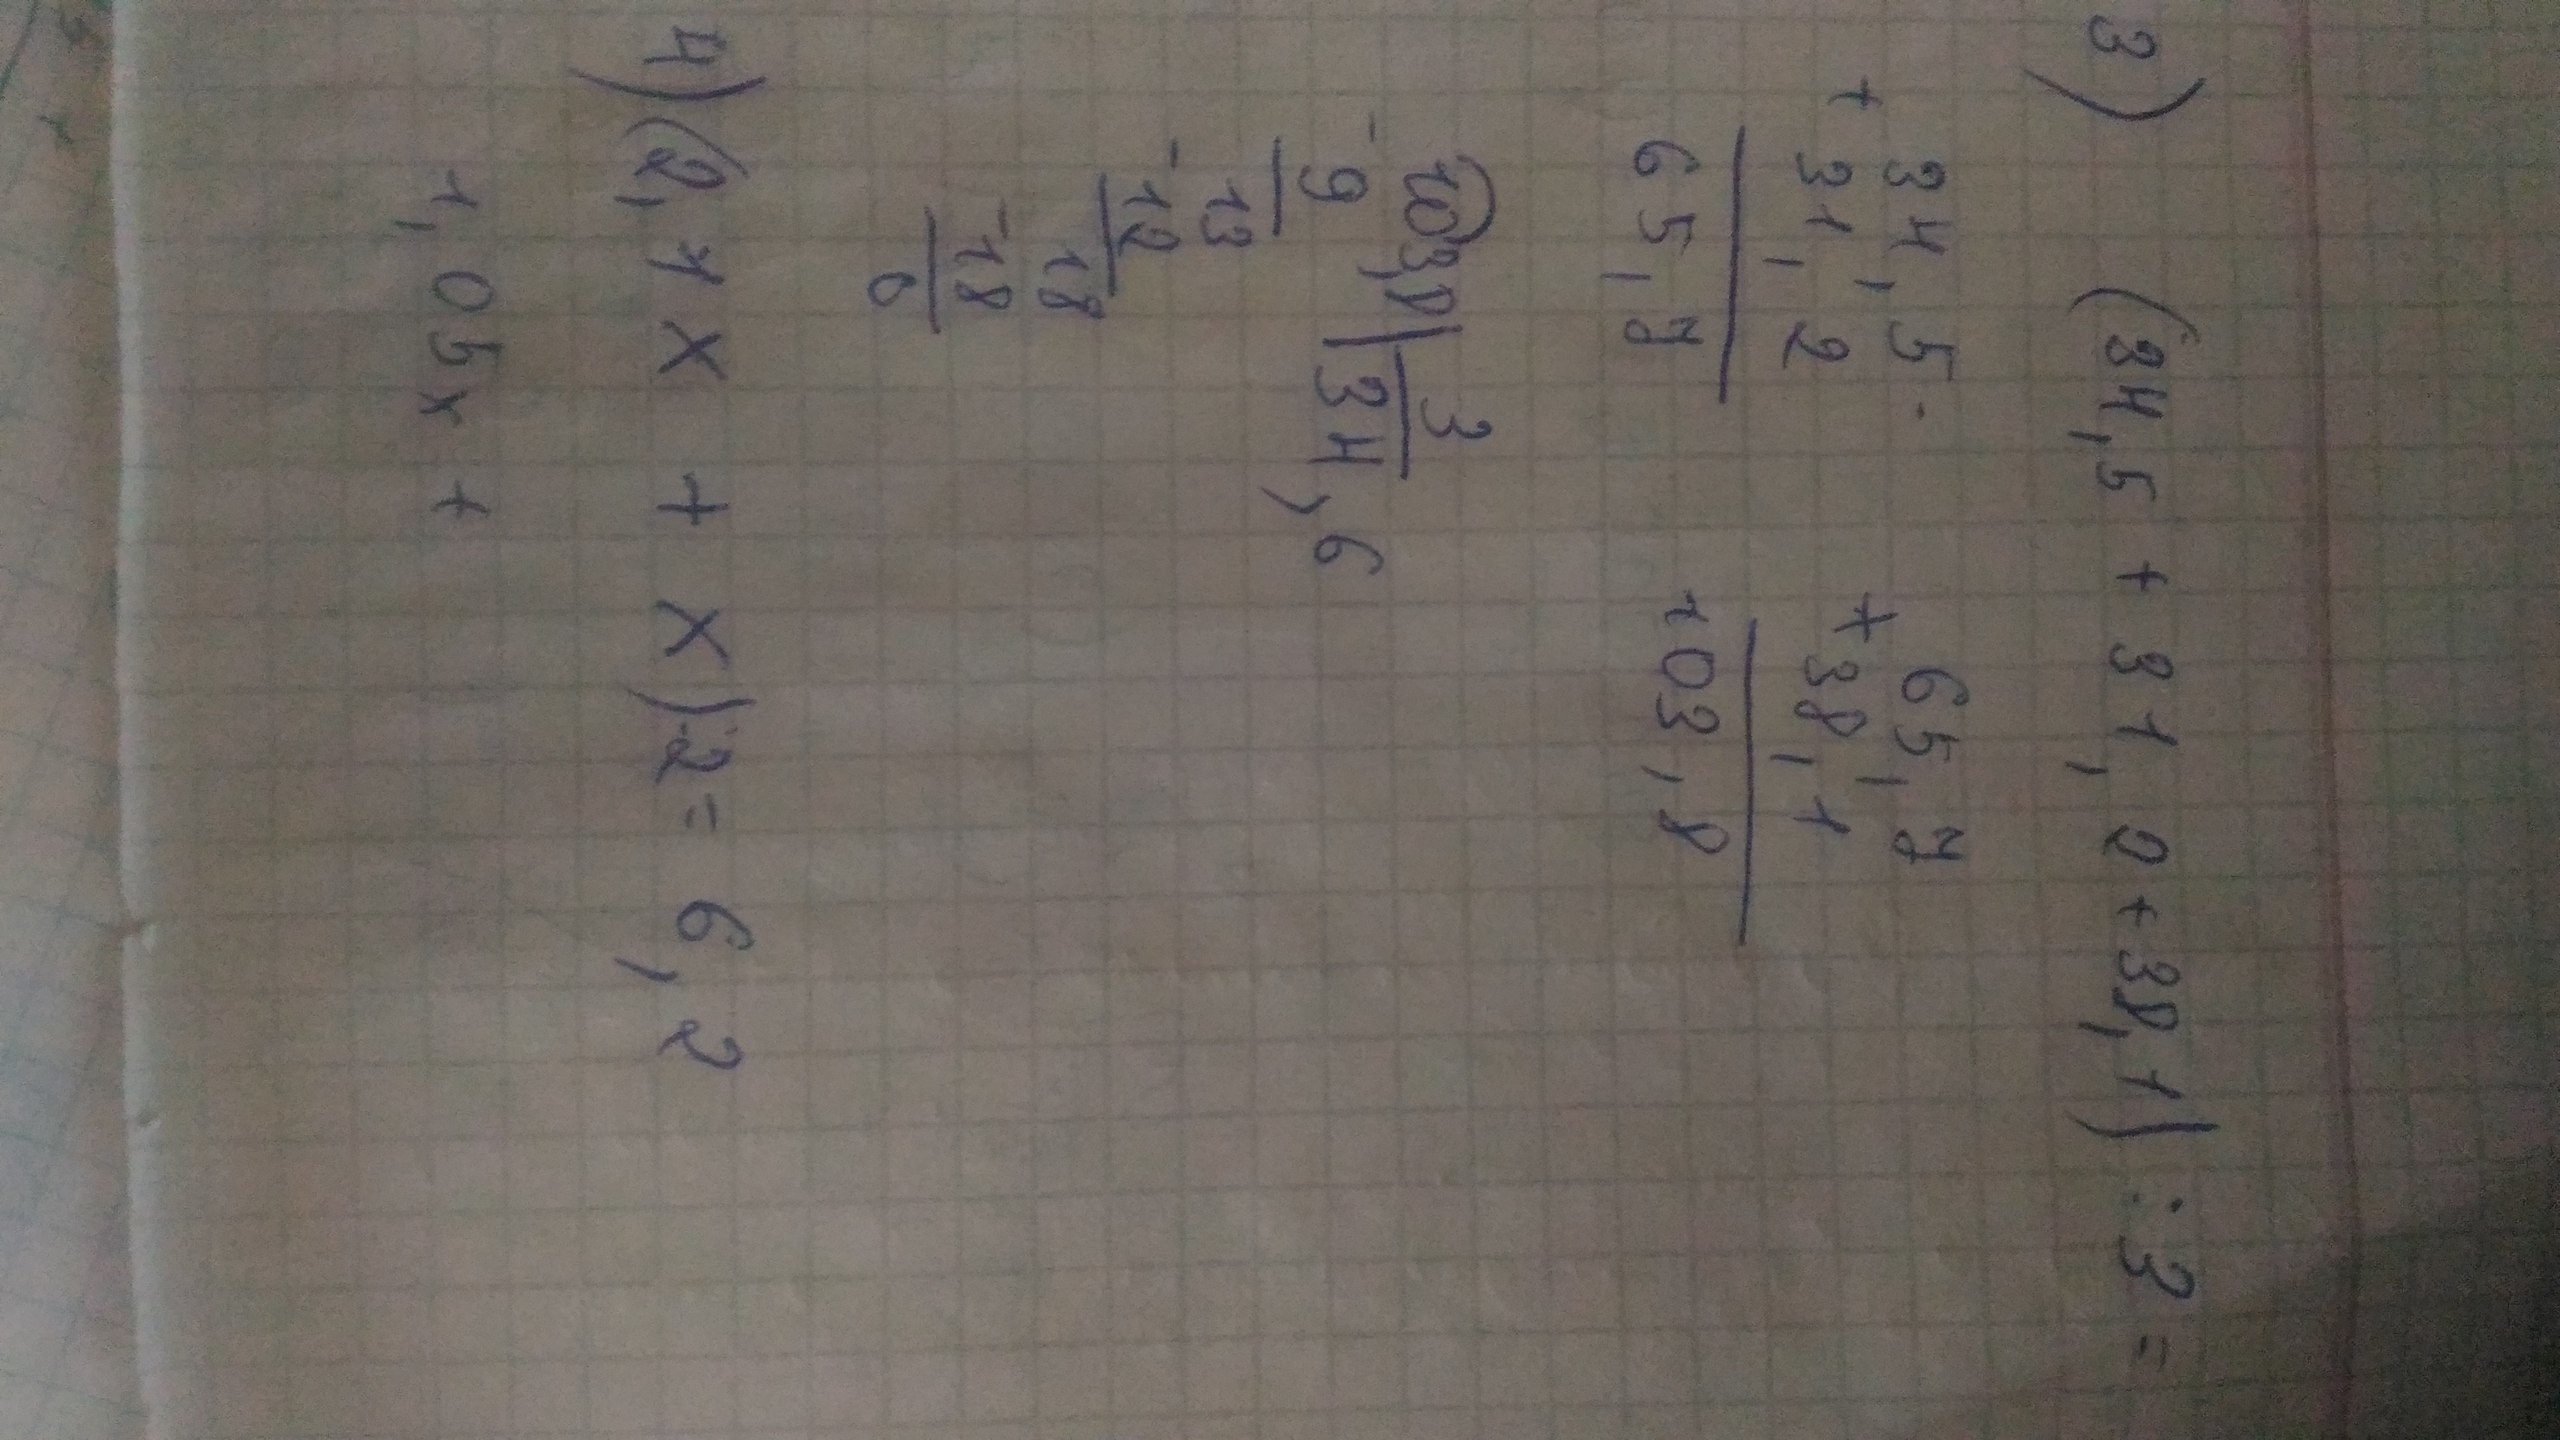 3) (34,5 + 31,2 + 38,1) : 3 =
34,5
+ 31,2
65,7
65,7
+ 38,1
103,8
103,8 | 3
- 9 | 34,6
13
- 12
18
- 18
0
4) (2,1x + x) : 2 = 6,2
1,05x +